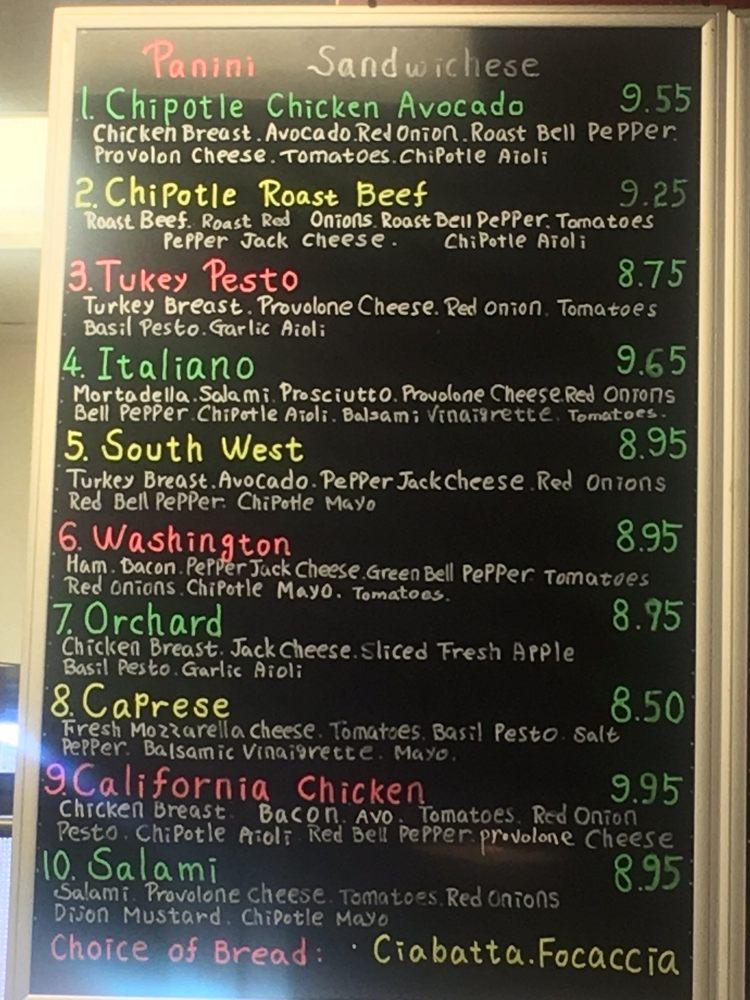 Panini Sandwichese
1. Chipotle Chicken Avocado 9.55
Chicken Breast. Avocado. Red Onion. Roast Bell Pepper.
Provolon Cheese. Tomatoes. Chipotle Aioli
2. Chipotle Roast Beef 9.25
Roast Beef. Roast Red Onions. Roast Bell Pepper. Tomatoes
Pepper Jack Cheese. Chipotle Aioli
3. Tukey Pesto 8.75
Turkey Breast. Provolone Cheese. Red Onion. Tomatoes
Basil Pesto. Garlic Aioli
4. Italiano 9.65
Mortadella. Salami. Prosciutto. Provolone Cheese Red Onions
Bell Pepper. Chipotle Aioli. Balsami Vinaigrette. Tomatoes.
5. South West 8.95
Turkey Breast. Avocado. Pepper Jack Cheese. Red Onions
Red Bell Pepper. Chipotle Mayo
6. Washington 8.95
Ham. Bacon. Pepper Jack Cheese. Green Bell Pepper. Tomatoes
Red Onions. Chipotle Mayo. Tomatoes.
7. Orchard 8.95
Chicken Breast. Jack Cheese. Sliced Fresh Apple
Basil Pesto. Garlic Aioli
8. Caprese 8.50
Fresh Mozzarella Cheese. Tomatoes. Basil Pesto. Salt
Pepper. Balsamic Vinaigrette. Mayo.
9. California Chicken 9.95
Chicken Breast. Bacon. Avo. Tomatoes. Red Onion
Pesto. Chipotle Aioli. Red Bell Pepper. provolone Cheese
10. Salami 8.95
Salami. Provolone Cheese. Tomatoes. Red Onions
Dijon Mustard. Chipotle Mayo
Choice of Bread: · Ciabatta. Focaccia